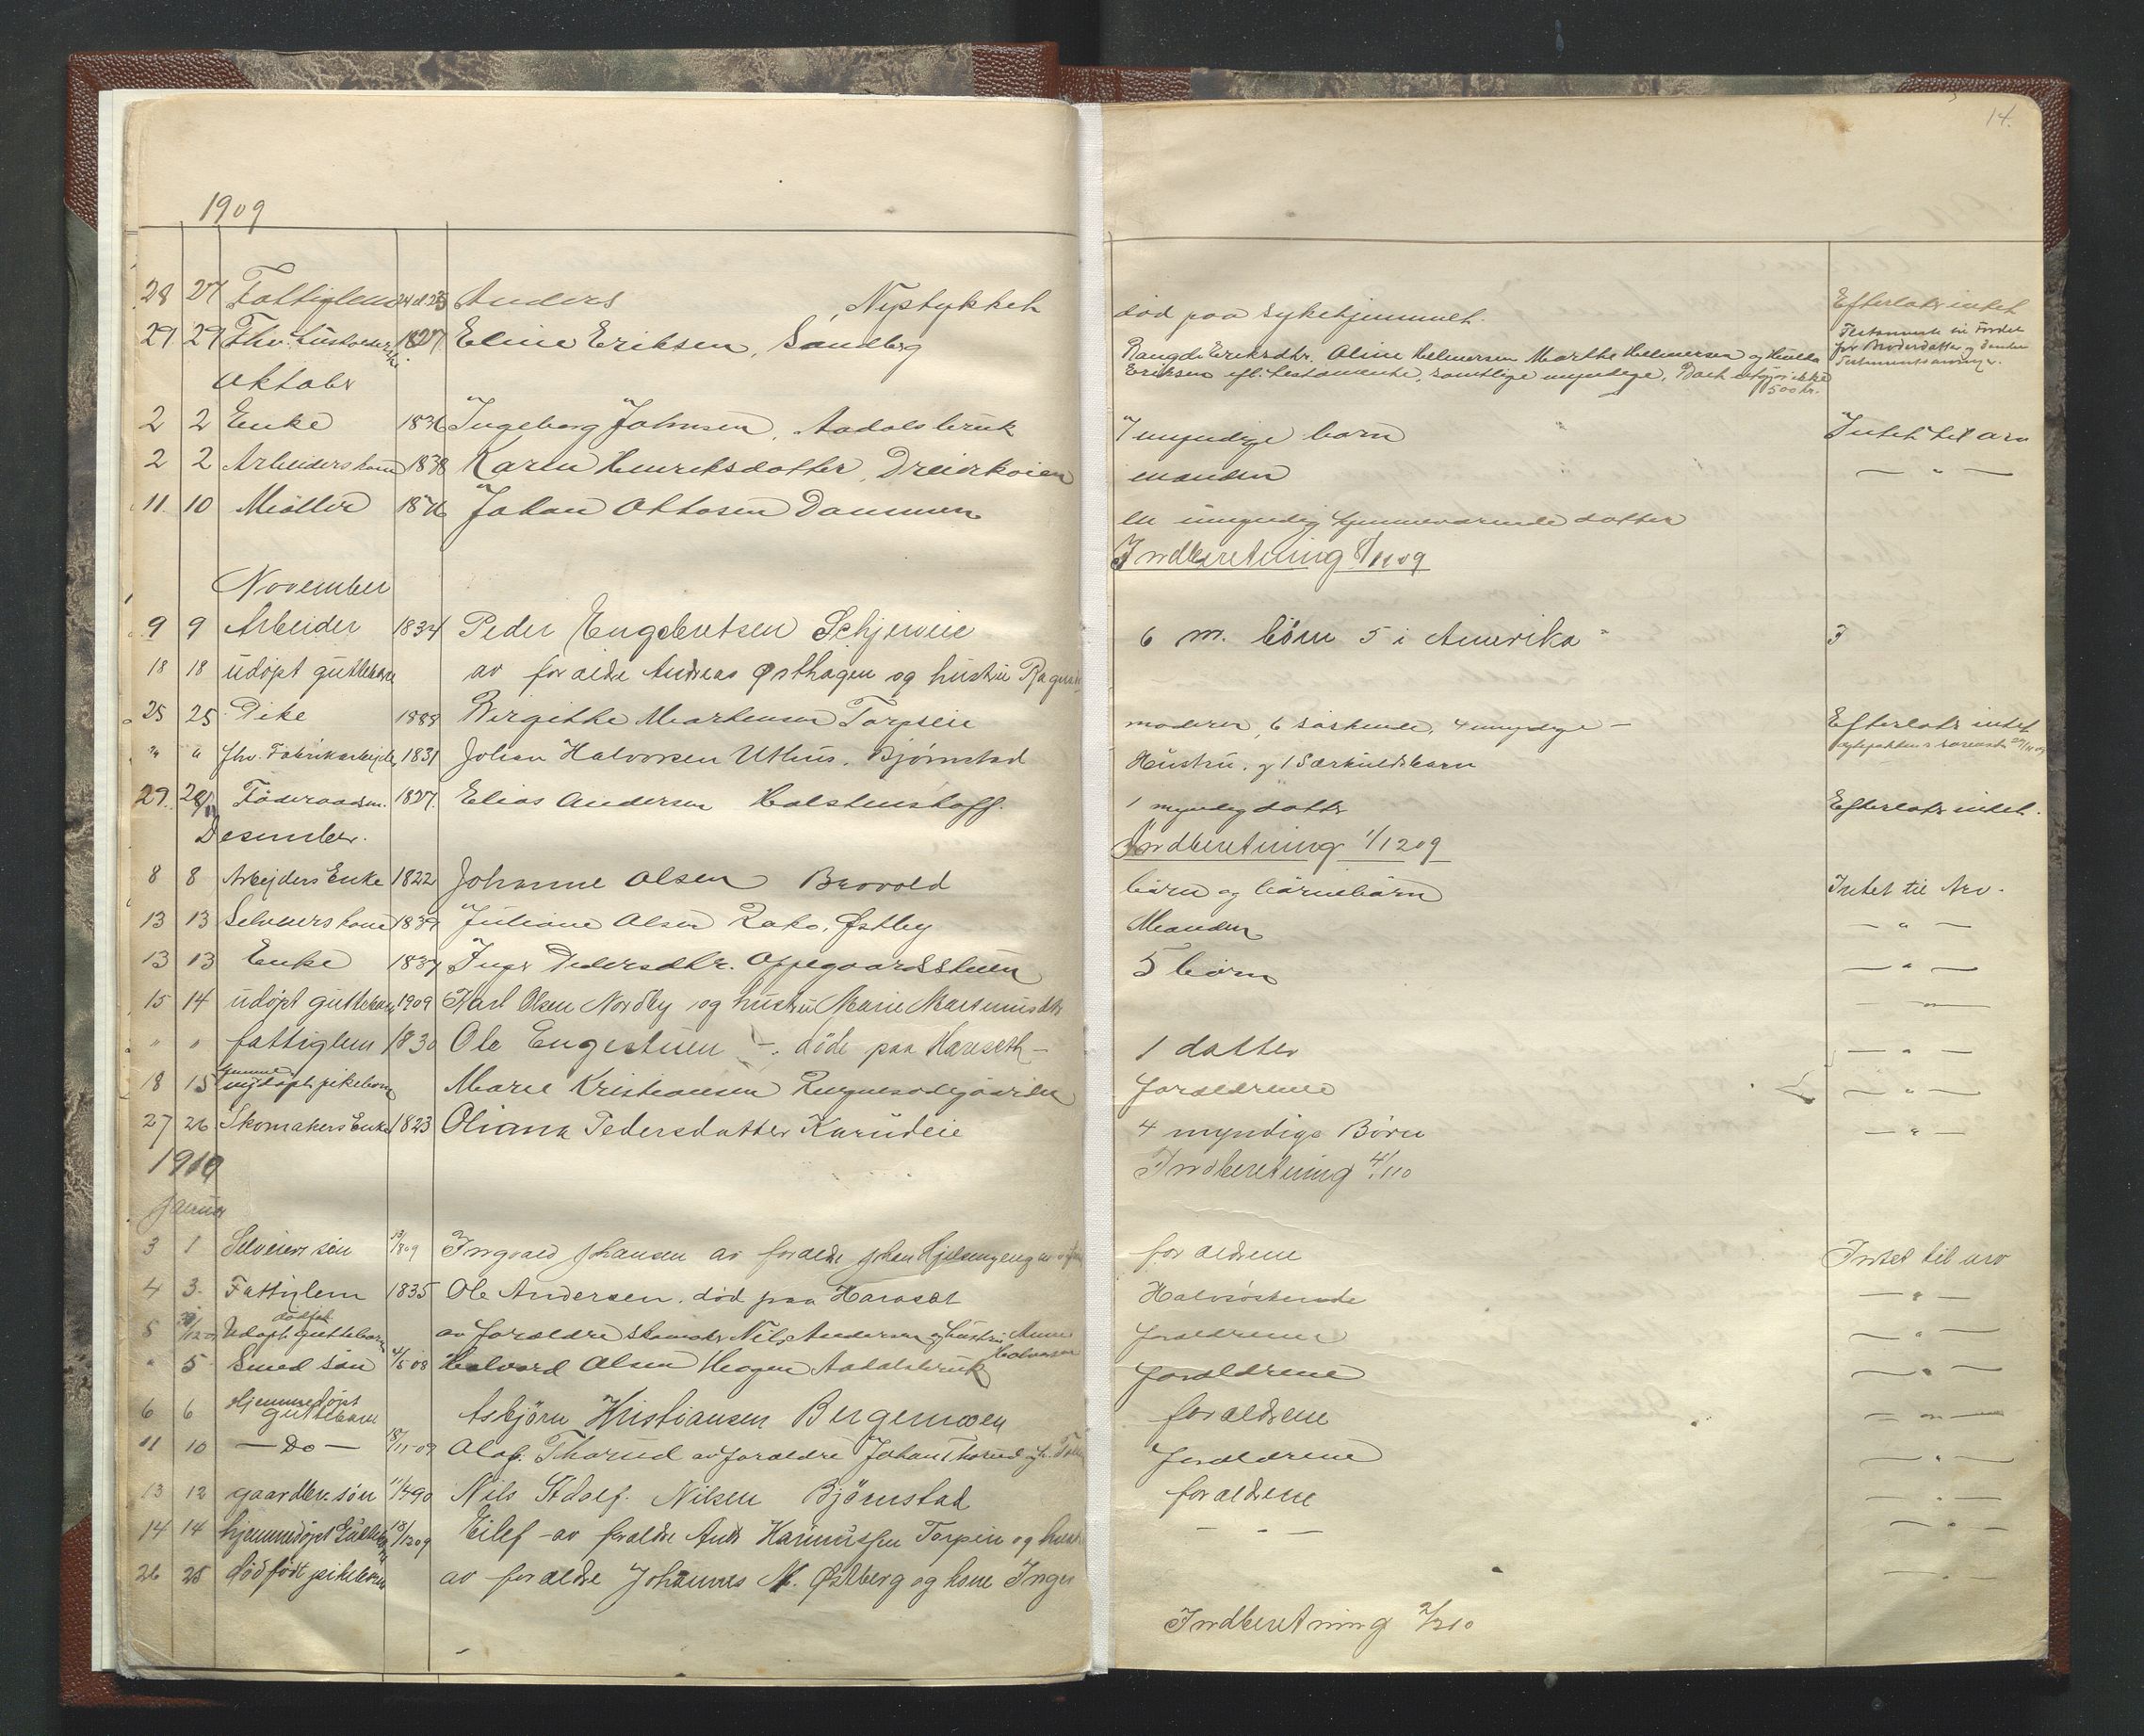 14.
1909
28 27 Fattiglem Anders Nystykket død paa sykehjemmet. Efterlater intet
29 29 Fhv. 1827 Eline Eriksen, Sandberg
Eriksdtr. Oline Helmersen Marthe Helmersen og
Eriksen efl. testamente, samtlige myndige,
500 kr.
Oktober
2 2 Enke 1836 Ingeborg Johnsen, Aadalsbruk 7 myndige barn Intet til arv
2 2 Arbeiders kone 1838 Karen Henriksdatter, Dreierkoien manden — " —
11 10 Møller 1876 Johan Ottosen Dammen en umyndig hjemmeværende datter
Indberetning 8/11 09
November
9 9 Arbeider 1834 Peder Engebretsen Schjerveie 6 m. børn 5 i Amerika
18 18 udøpt guttebarn av forældre Andreas Østhagen og hustru
25 25 Pike 1888 Birgitte Martensen Torpeie moderen, 6 søskende, 4 myndige — Efterlater intet
" " fhv. Fabrikarbejder 1831 Johan Halvorsen Uthus, Bjørnstad Hustru og 1 Særkuldsbarn
29. 28 Føderaadsm. 1827. Elias Andersen Holstenshoff. 1 myndig datter Efterlater intet.
Desember.
Indberetning 1/12 09
8 8 Arbejders Enke 1822 Johanne Olsen Brovold børn og børnebørn Intet til Arv.
13 13 Selveiers kone 1839 Juliane Olsen Rako, Østby Manden — " —
13 13 Enke 1837 Inger Pedersdtr. Oppegaardsstuen 5 børn — " —
15 14 udøpt guttebarn 1909 Karl Olsen Nordby og hustru Marie — " —
" " fattiglem 1830 Ole Engestuen —. døde paa Haraseth — 1 datter — " —
18 15 hjemmedøpt pikebarn Marie Kristiansen forældrene — " —
27 26 Skomakers Enke 1823 Oliana Pedersdatter Karudeie 4 myndige Børn — " —
1910
Indberetning 4/1 10
Januar
3 1 Selveiers søn Ingvald Johansen av forældre Johan forældrene Intet til arv
4 3. Fattiglem 1835 Ole Andersen. død paa Haraset Halvsøskende — " —
5 Udøpt dødfødt guttebarn av forældre Nils Andersen og hustru Anne Halvorsen forældrene — " —
" 5 Smed søn 4/5 08 Halvard Olsen Hagen Aadalsbruk forældrene — " —
6 6 Hjemmedøpt guttebarn Asbjørn Kristiansen Bergemoen forældrene — " —
11 10 — Do — 18/11 09 Olaf Thorud av forældre Johan Thorud og h. forældrene — " —
13 12 gaardbr. søn 11/4 90 Nils Adolf Nilsen Bjørnstad forældrene — " —
14 14 hjemmedøpt Guttebarn 18/12 09 Eilef — av forældre Torpeie og — " — — " —
26 25 dødfødt pikebarn av forældre Johannes M. Østberg og kone Inger — " —
Indberetning 2/2 10